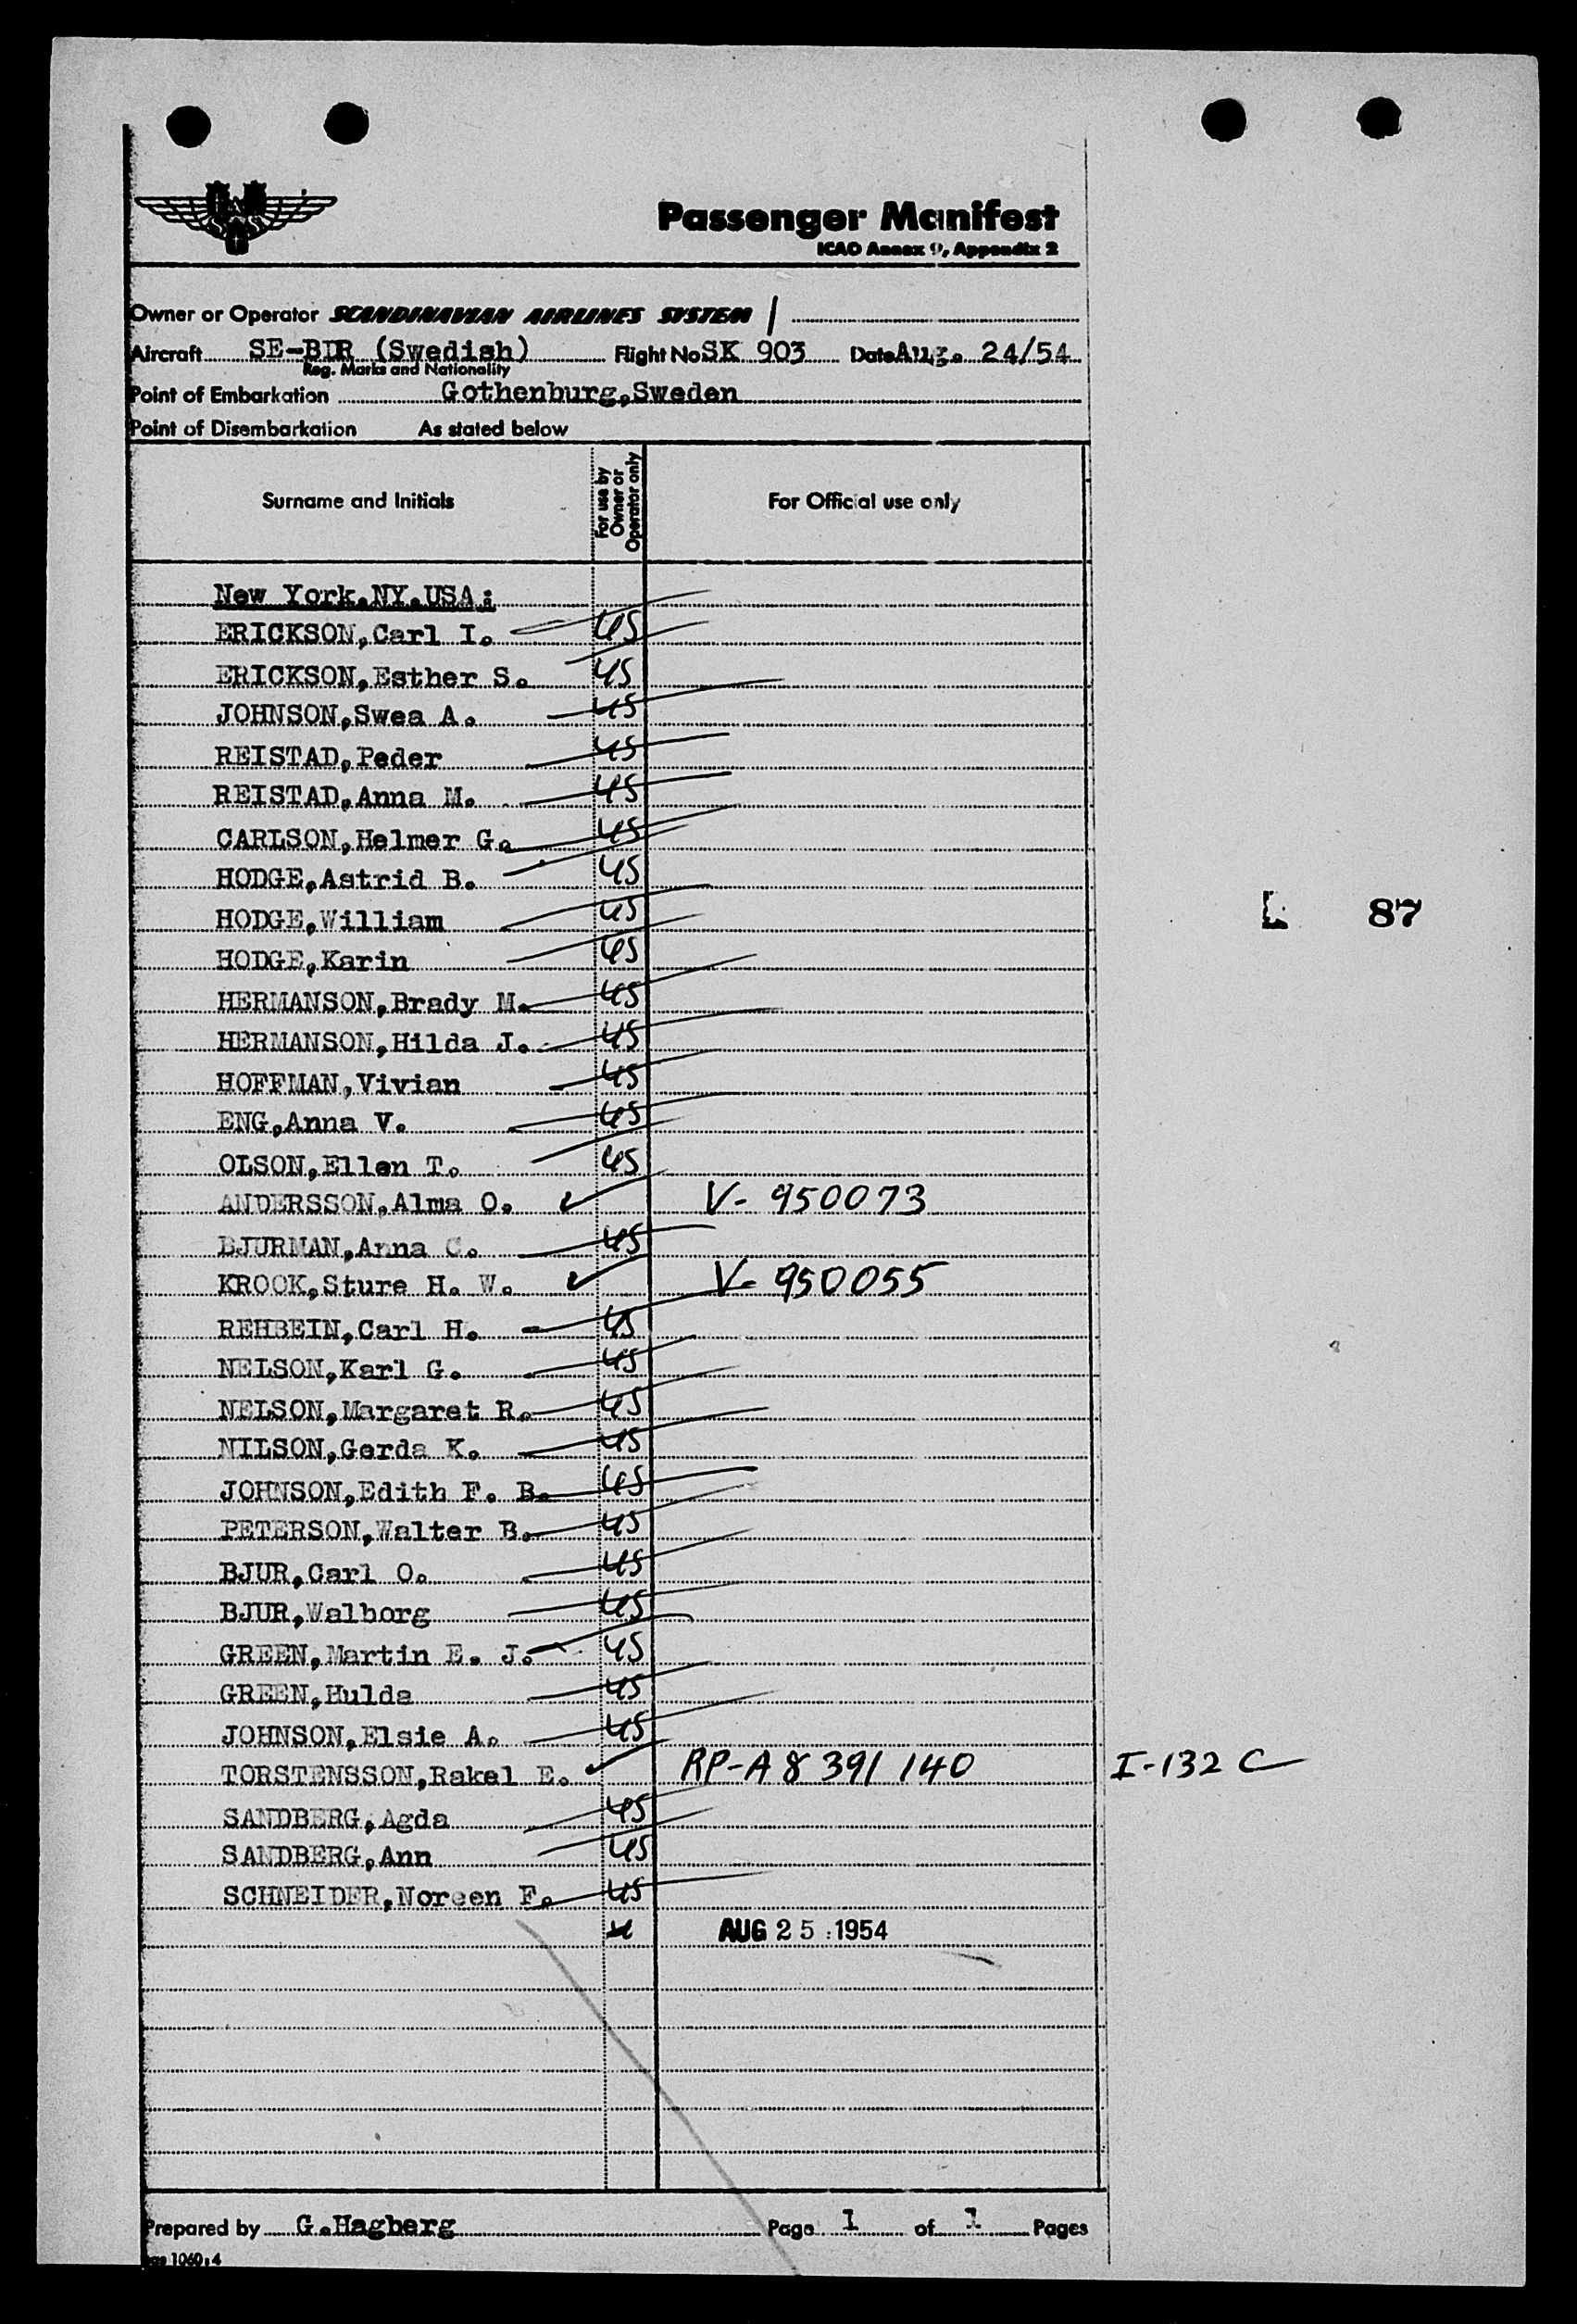 Passenger Manifest
ICAO Annex 9, Appendix 2
Owner or Operator SCANDINAVIAN AIRLINES SYSTEM /
Aircraft SE-BDR (Swedish) Flight No SK 903 Date Aug. 24/54
Reg. Marks and Nationality
Point of Embarkation Gothenburg,Sweden
Point of Disembarkation As stated below
Surname and Initials For use by Owner or Operator only For Official use only
New York.NY.USA:
ERICKSON,Carl I. US
ERICKSON,Esther S. US
JOHNSON,Swea A. US
REISTAD,Peder US
REISTAD,Anna M. US
CARLSON,Helmer G. US
HODGE,Astrid B. US
HODGE,William US
L 87
HODGE,Karin US
HERMANSON,Brady M. US
HERMANSON,Hilda J. US
HOFFMAN,Vivian US
ENG,Anna V. US
OLSON,Ellen T. US
ANDERSSON,Alma O. ✓ V- 950073
BJURMAN,Anna C. US
KROOK,Sture H. W. ✓ V- 950055
REHBEIN,Carl H. US
NELSON,Karl G. US
NELSON,Margaret R. US
NILSON,Gerda K. US
JOHNSON,Edith F. B. US
PETERSON,Walter B. US
BJUR,Carl O. US
BJUR,Walborg US
GREEN,Martin E. J. US
GREEN,Hulda US
JOHNSON,Elsie A. US
TORSTENSSON,Rakel E. ✓ RP-A 8 391 140 I-132 C
SANDBERG,Agda US
SANDBERG,Ann US
SCHNEIDER,Noreen F. US
AUG 25 1954
Prepared by G.Hagberg Page 1 of 1 Pages
1060:4